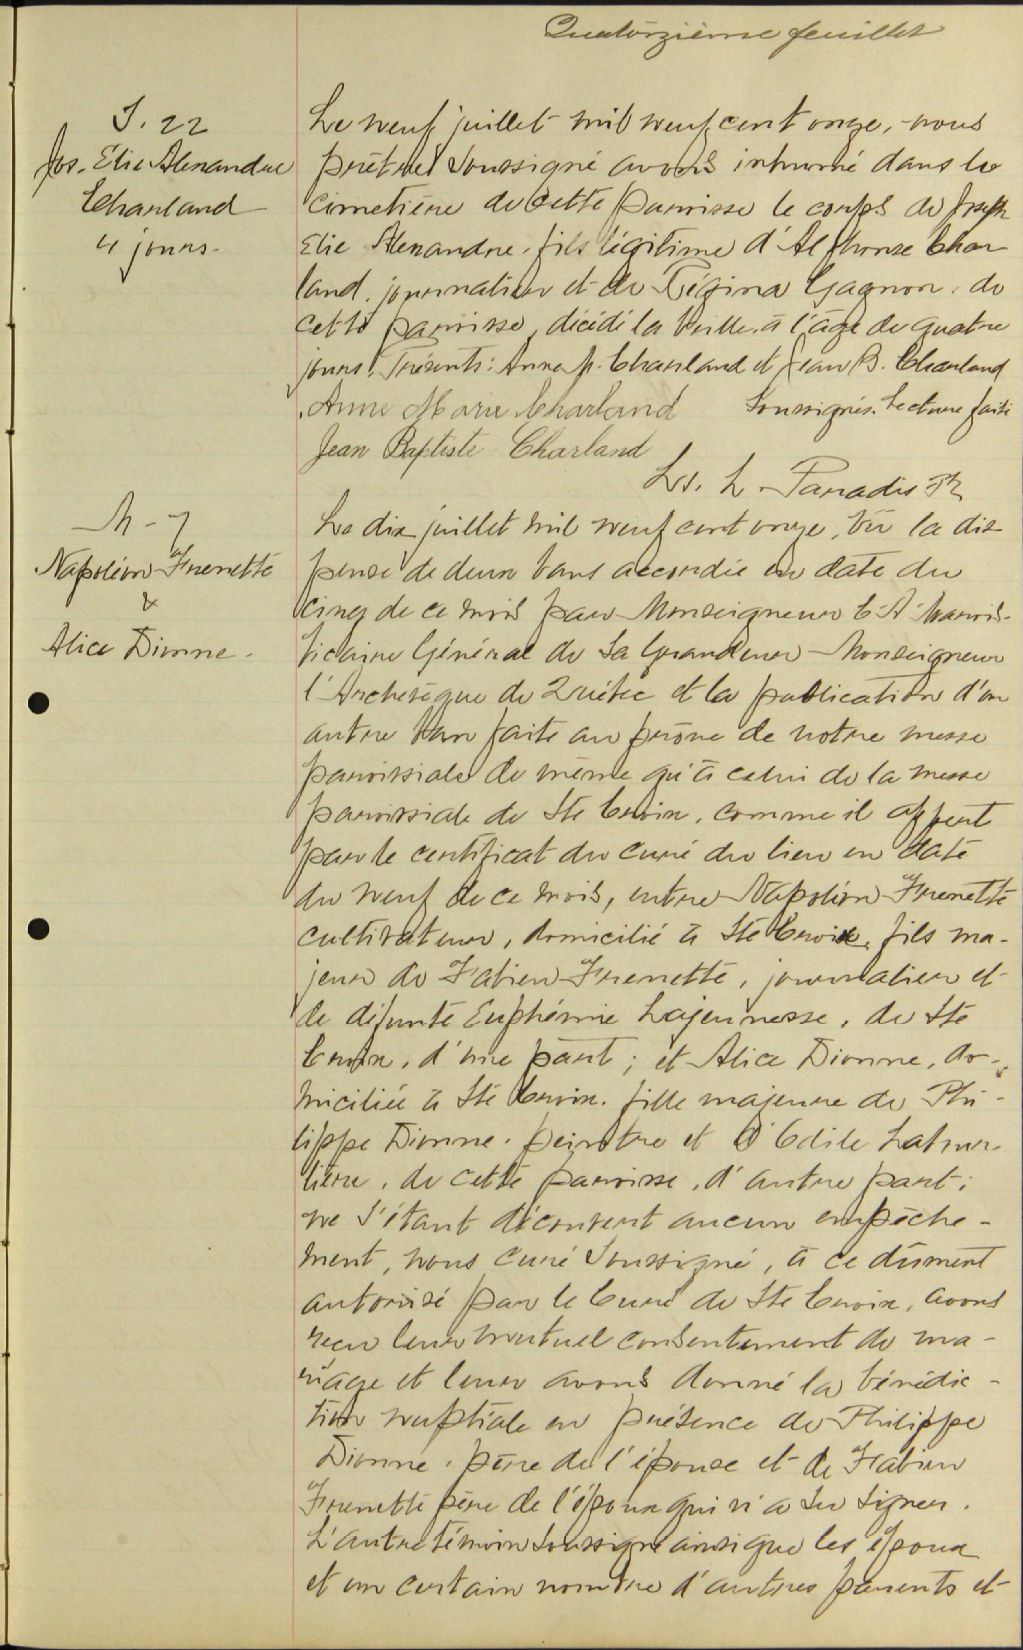 Quatorzième feuillet
S. 22
Jos. Élie Alexandre
Charland
4 jours.
Le neuf juillet mil neuf cent onze, nous
prêtre soussigné avons inhumé dans le
cimetière de cette paroisse le corps de Joseph
Elie Alexandre, fils légitime d'Alphonse Char
land, journalier et de Régina Gagnon, de
cette paroisse, décédé la veille, à l'âge de quatre
jours. Présents: Anna M. Charland et Jean B. Charland
Anne Marie Charland soussignés. Lecture faite
Jean Baptiste Charland
Ls. L. Paradis Ptr
M-7
Napoléon Frenette
&
Alice Dionne.
Le dix juillet mil neuf cent onze, vu la dis
pense de deux bans accordée en date du
cinq de ce mois par Monseigneur C. A. Marois
Vicaire Général de Sa Grandeur Monseigneur
l'Archevêque de Québec et la publication d'un
autre ban faite au prône de notre messe
paroissiale de même qu'à celui de la messe
paroissiale de Ste Croix, comme il appert
par le certificat du curé du lieu en date
du neuf de ce mois, entre Napoléon Frenette
cultivateur, domicilié à Ste Croix, fils ma-
jeur de Fabien Frenette, journalier et
de défunte Euphémie Lajeunesse, de Ste
Croix, d'une part; et Alice Dionne, do-
miciliée à Ste Croix, fille majeure de Phi-
lippe Dionne, peintre et d'Odile Latur-
lière, de cette paroisse, d'autre part;
ne s'étant découvert aucun empêche-
ment, nous curé soussigné, à ce dûment
autorisé par le Curé de Ste Croix, avons
reçu leur mutuel consentement de ma-
riage et leur avons donné la bénédic-
tion nuptiale en présence de Philippe
Dionne, père de l'épouse et de Fabien
Frenette père de l'époux qui n'a su signer.
L'autre témoin soussigné ainsi que les époux
et un certain nombre d'autres parents et